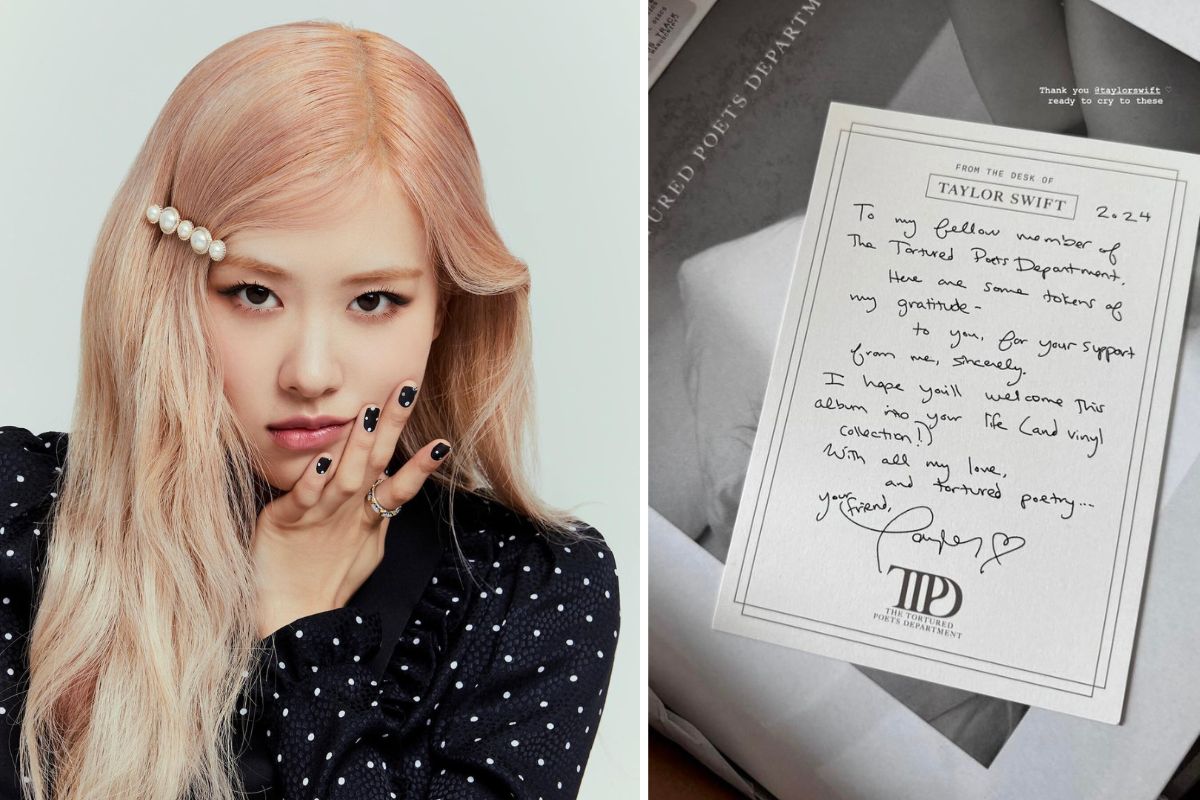 TRACK
TURED POETS DEPARTM
Thank you @taylorswift ♡
ready to cry to these
FROM THE DESK OF
TAYLOR SWIFT
2024
To my fellow member of
The Tortured Poets Department,
Here are some tokens of
my gratitude -
to you, for your support
from me, sincerely.
I hope you'll welcome this
album into your life (and vinyl
collection!)
With all my love,
and tortured poetry...
your friend,
Taylor ♡
TTPD
THE TORTURED
POETS DEPARTMENT